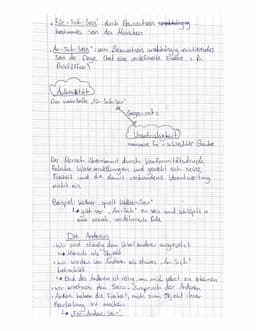 • „Für-Sich-Sein": durch Bewusstsein unabhängig
bestimmtes Sein des Menschen
• „An-Sich-Sein": vom Bewusstsein unabhängig existierendes
Sein der Dinge (hat eine vordefinierte Funktion z.B.
Brieföffner)
Authentizität
Das wahrhafte „Für-Sich-Sein"
Gegensatz
Unaufrichtigkeit
mauvaise foi = schlechter Glaube
Der Mensch übernimmt durch Konformitätsdruck
falsche Wertvorstellungen und gesteht sich seine
Freiheit und die damit verbundene Verantwortung
nicht ein.
Beispiel: Kellner „spielt Kellner-Sein"
↳ gibt vor „An-Sich" zu sein und schlüpft in
eine soziale, vordefinierte Rolle
Die Anderen
• Wir sind ständig dem Urteil anderer ausgesetzt
↳ Mensch als Objekt
• Wir werden von Anderen als etwas „An-Sich"
betrachtet
↳ Blick des Anderen ist nötig, um mich selbst zu erkennen
• Wir erkennen den Seins-Anspruch der Anderen
• Andere haben die Freiheit, mich zum Objekt ihrer
Beurteilung zu machen
↳ „Für-Andere-Sein"